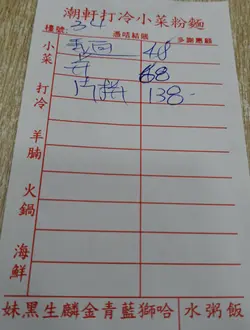 潮軒打冷小菜粉麵
檯號: 34 憑咭結賬 多謝惠顧
小菜
48
68
138-
打冷
羊腩
火鍋
海鮮
妹黑生麟金青藍獅哈 水粥飯